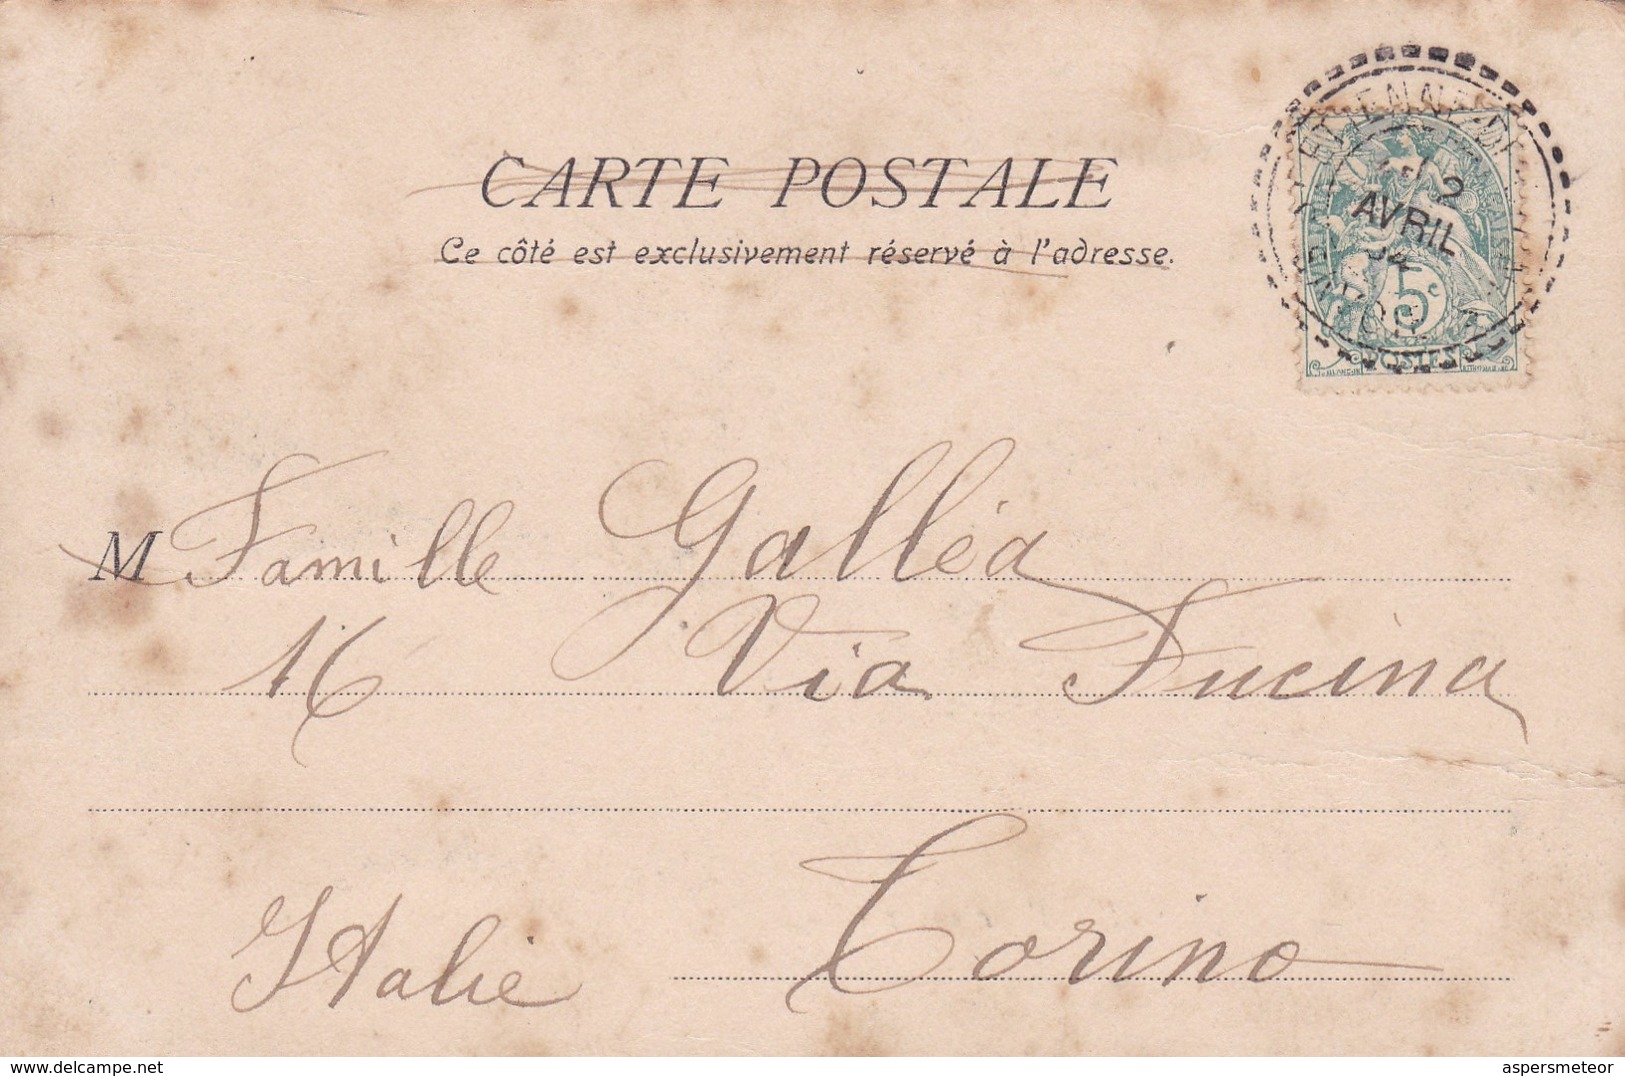 CARTE POSTALE
Ce côté est exclusivement réservé à l'adresse.
2
AVRIL
04
5c
POSTES
M Famille Galléa
16 Via Fucina
Torino
Italie
www.delcampe.net
aspersmeteor